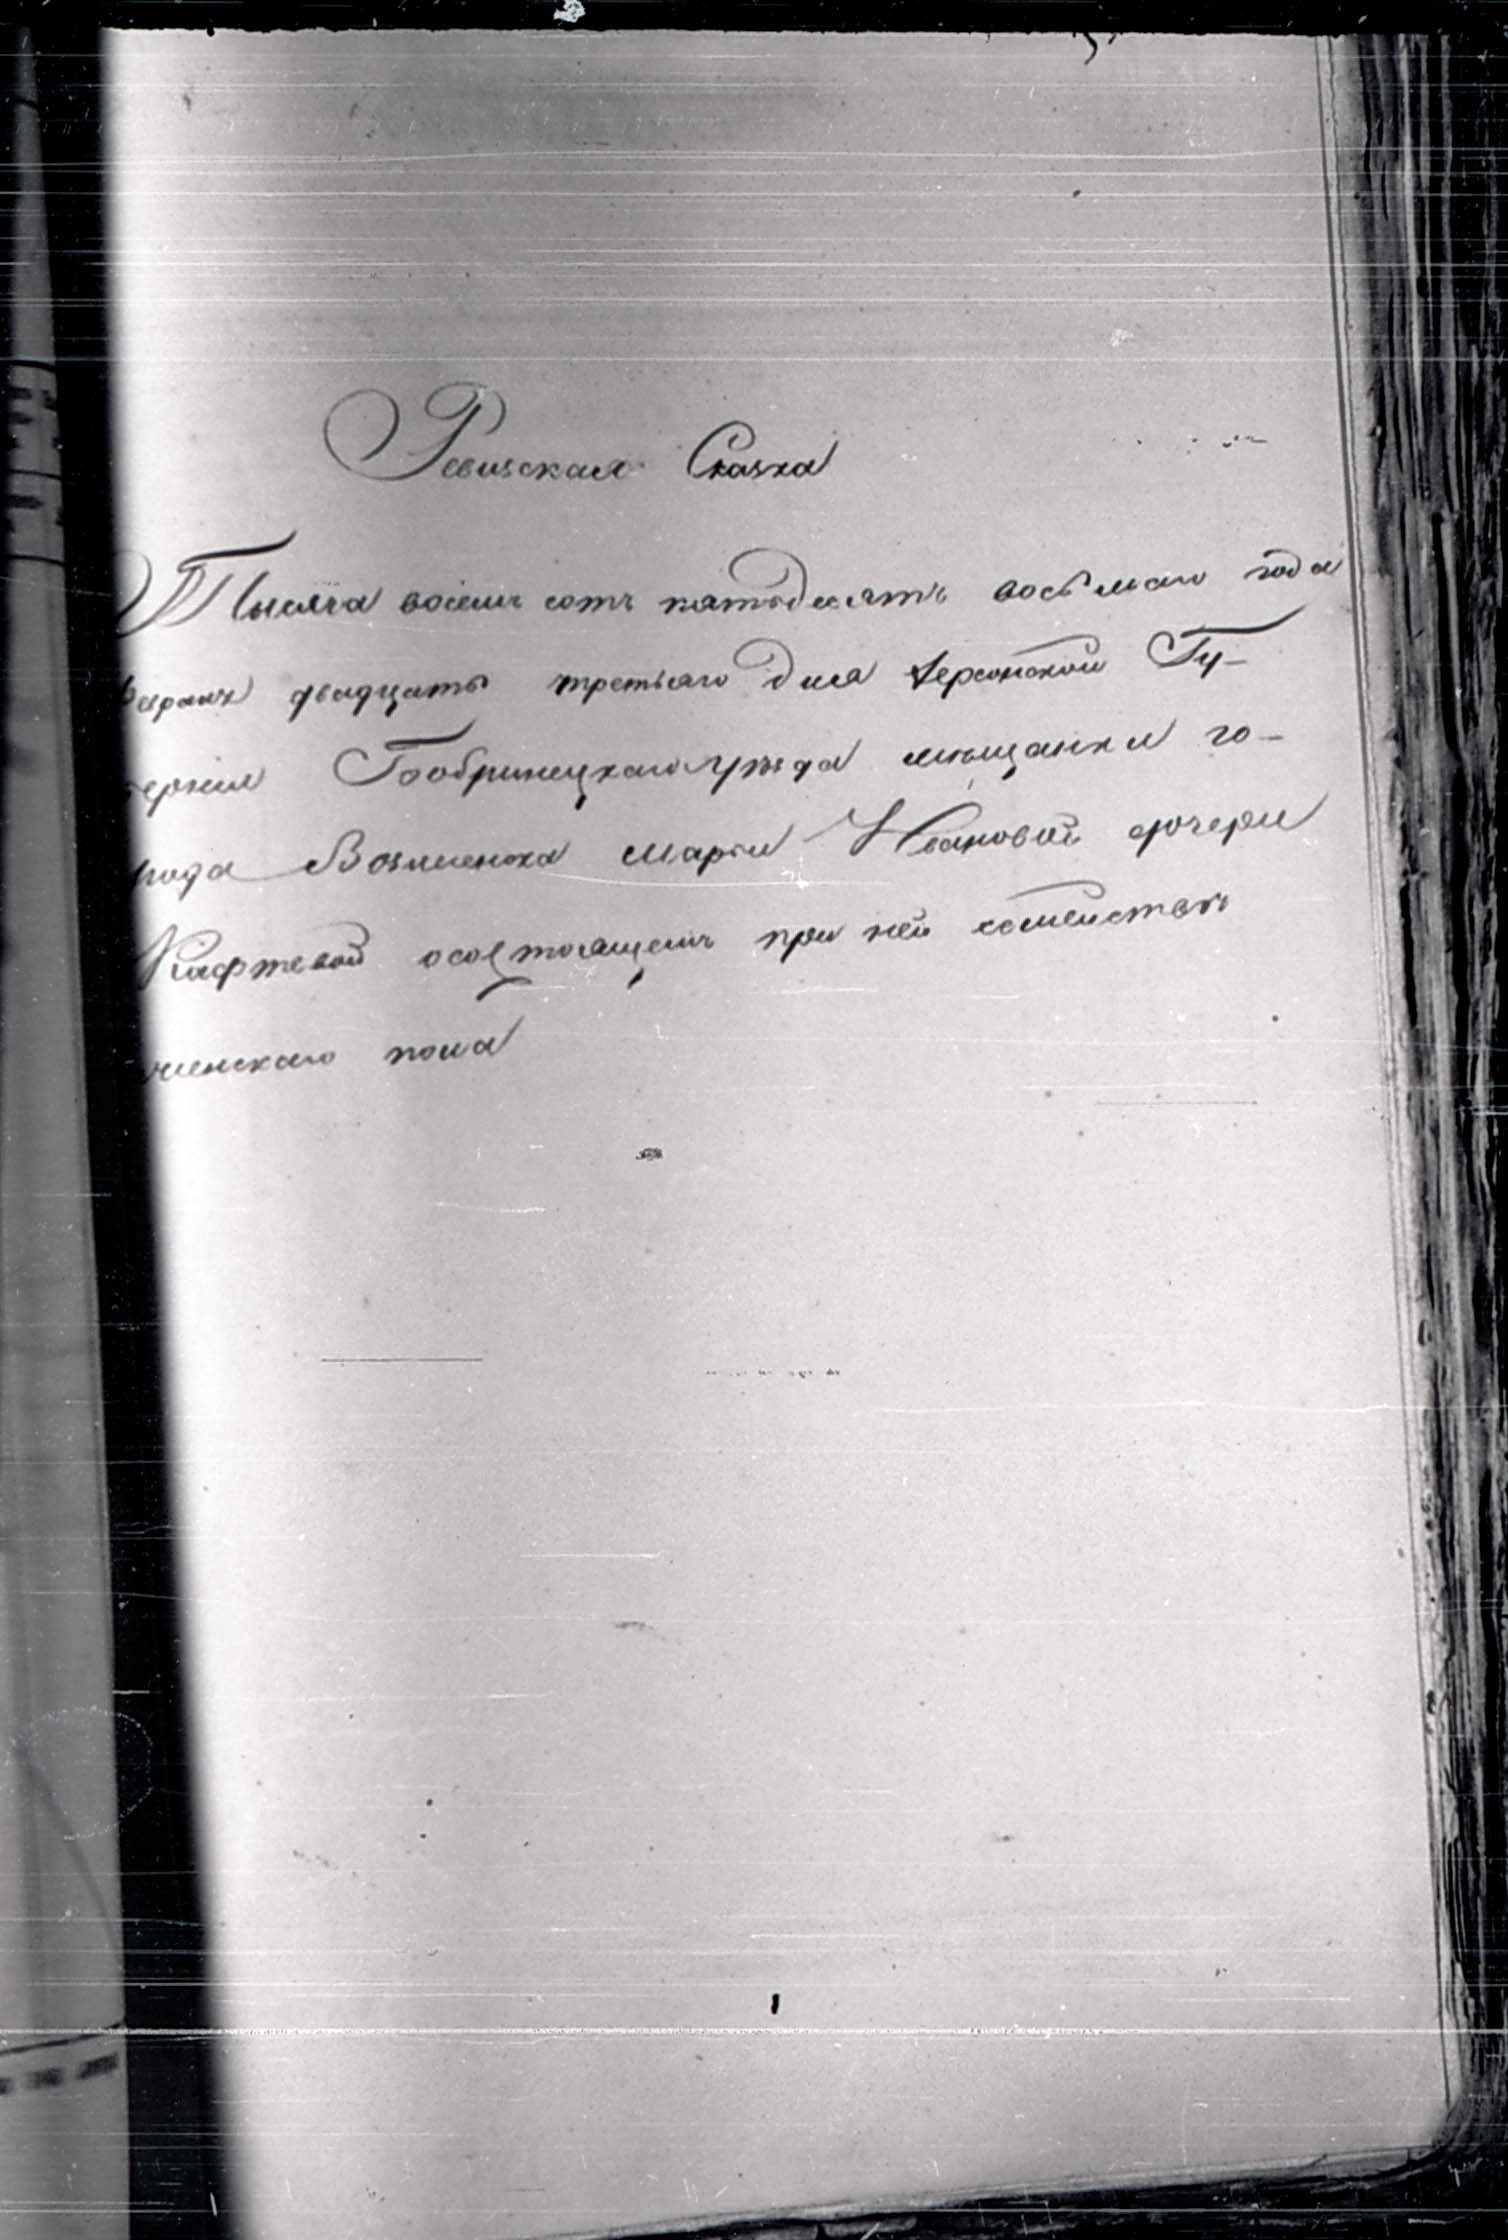 Ревизская Сказка
Тысяча восемь сотъ пятьдесятъ восьмаго года
Февраля двадцать третьяго дня Херсонской Гу-
берніи Бобринецкаго уѣзда мѣщанки го-
рода Вознесенска Марьи Ивановой дочери
осостоящемъ при ней семействѣ
женскаго пола